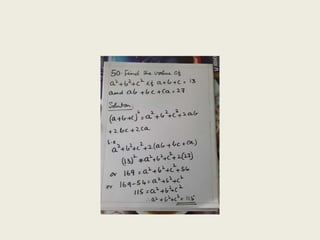 50. Find the value of
a²+b²+c² if a+b+c = 13
and ab + bc + ca = 27
Solution
(a+b+c)² = a²+b²+c²+2ab
+2bc+2ca
a²+b²+c²+2(ab+bc+ca)
(13)² = a²+b²+c²+2(27)
or 169 = a²+b²+c²+54
or 169-54 = a²+b²+c²
115 = a²+b²+c²
∴ a²+b²+c² = 115